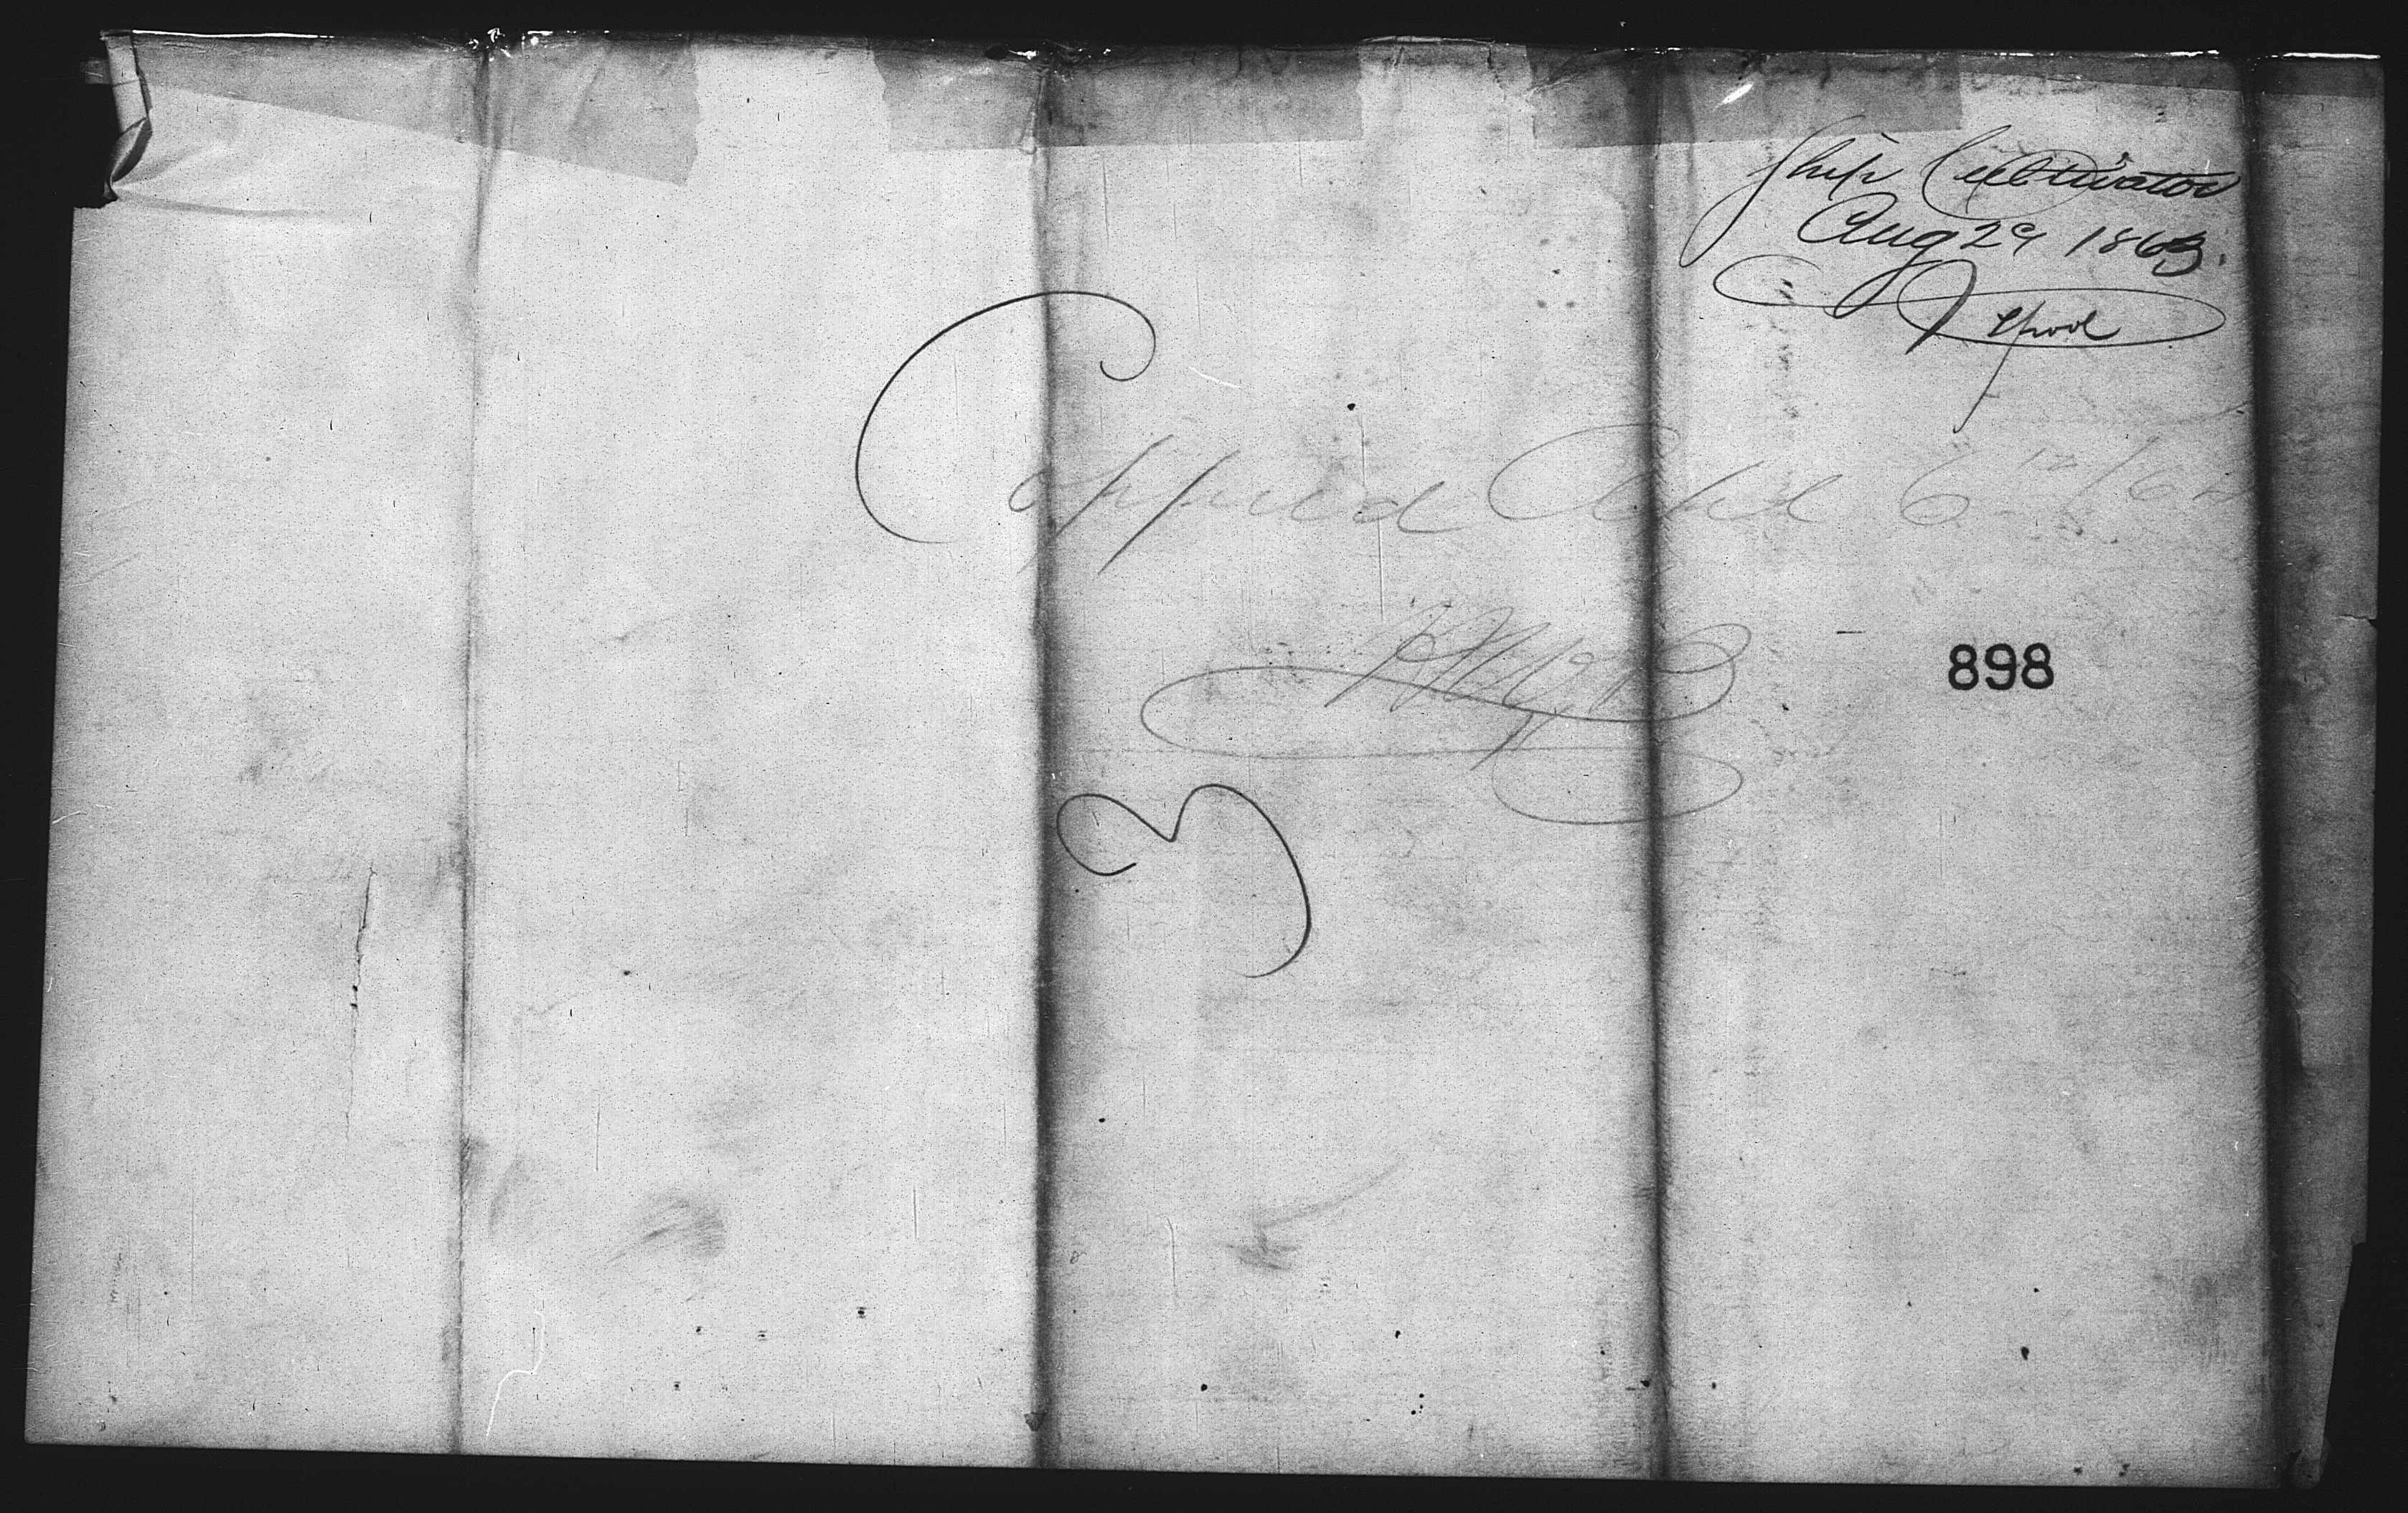 Ship Cultivator
Aug 29 1863.
Lpool
Coppied Apl 6th/64
898
3